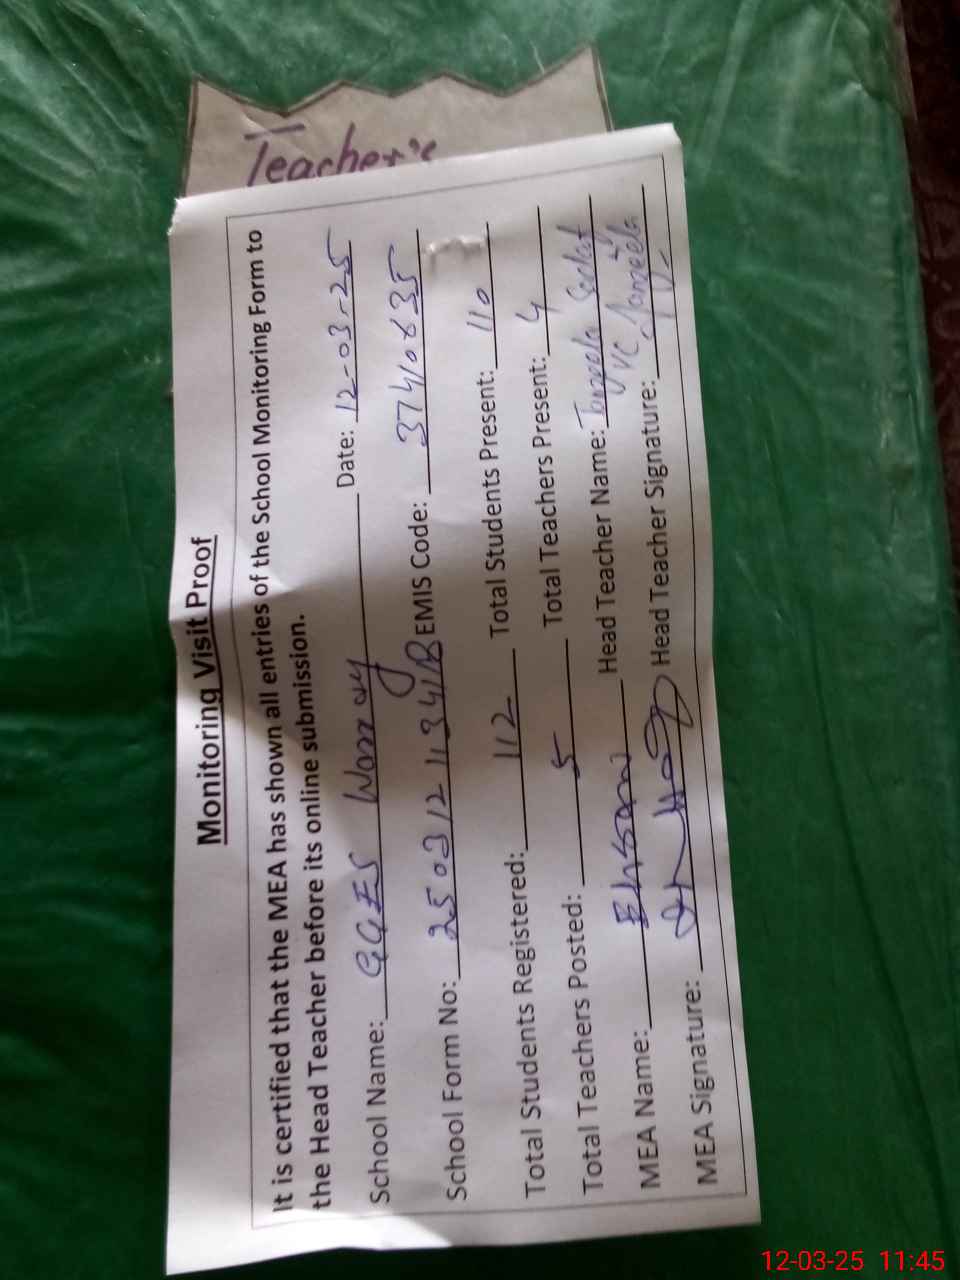 Teacher's
Monitoring Visit Proof
It is certified that the MEA has shown all entries of the School Monitoring Form to
the Head Teacher before its online submission.
School Name: GGES Date: 12-03-25
School Form No: EMIS Code:
Total Students Registered: 112 Total Students Present: 110
Total Teachers Posted: 5 Total Teachers Present: 4
MEA Name: Head Teacher Name:
MEA Signature: Head Teacher Signature:
12-03-25 11:45